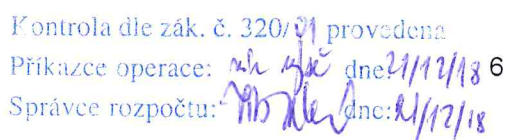 Kontrola dle zák. č. 320/01 provedena
Příkazce operace: dne: 21/12/18 6
Správce rozpočtu: dne: 21/12/18